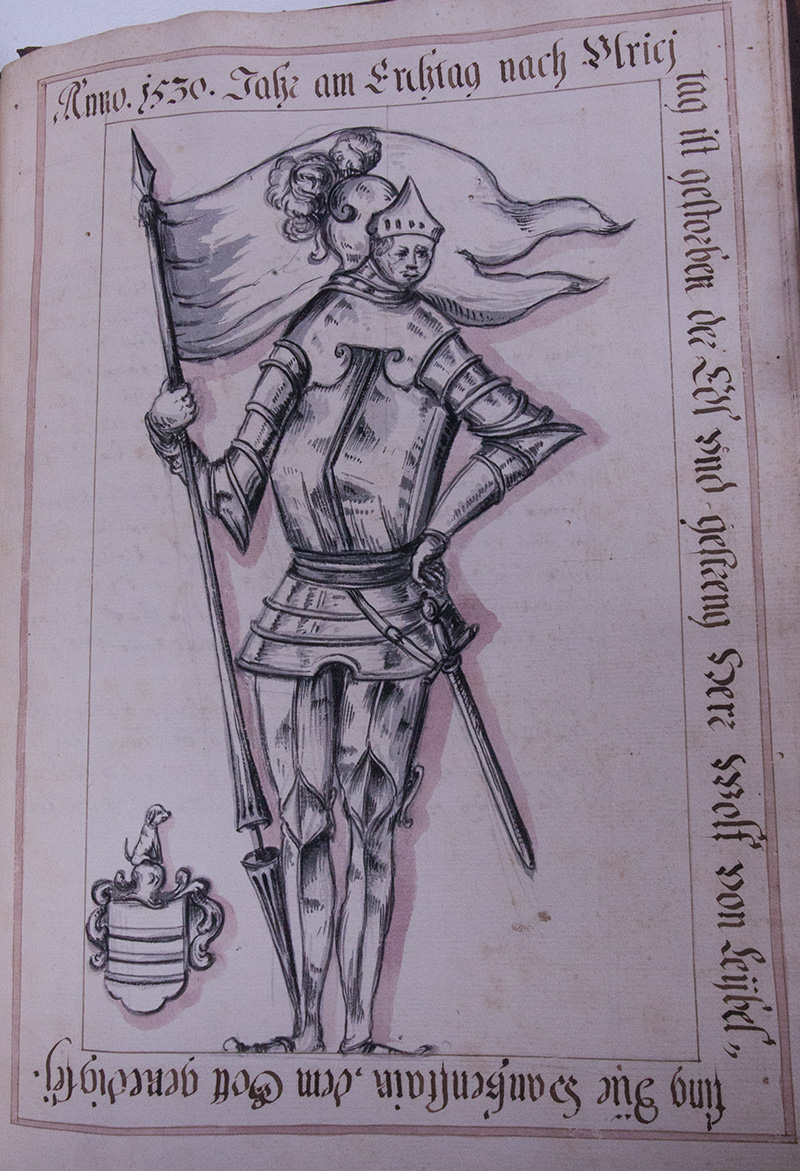 Anno. 1530. Jahr am Erchtag nach Vlricj
tag ist gestorben der Edl vnd gestreng Herr Wolff von Leijbel„
fing Züe Haußenstain, dem Gott genedig sej.